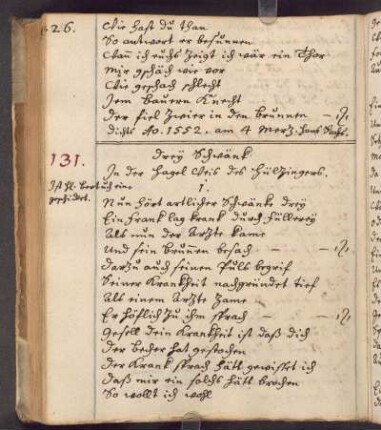 26.
Wie hast du than
So antwort er besunnen
Wann ichs euch zeigt ich wär ein Thor
Mir gschäch wie vor
Wie geschach schlecht
Jem bauern Knecht
Der fiel Zwier in den brunnen
dichts Ao. 1552. am 4 Mertz. Hans Sachs.
131.
Drey Schwänk
In der Hagel Weis des Hültzingers.
1.
Nun hört artlicher Schwänke drey
Ein Frank lag krank durch Füllerey
Als nun der Arzte kame
Und sein brunnen besach
darzu auch seinen Puls begrif
Seiner Krankheit nachgründet tief
Als einem Arzte zame
Er höflich zu ihm sprach
Gesell dein Krankheit ist daß dich
Der becher hat gestochen
Der Krank sprach hätt gewisset ich
daß mir ein solchs hätt brochen
So wollt ich wohl